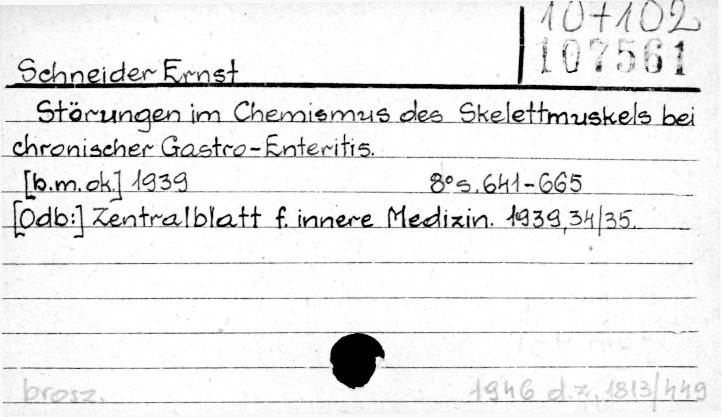 107102
107561
Schneider Ernst
Störungen im Chemismus des Skelettmuskels bei
chronischer Gastro-Enteritis.
[b.m.ok.] 1939 8°s. 641-665
[Odb:] Zentralblatt f. innere Medizin. 1939, 34/35.
brosz. 1946 d.z. 1813/449